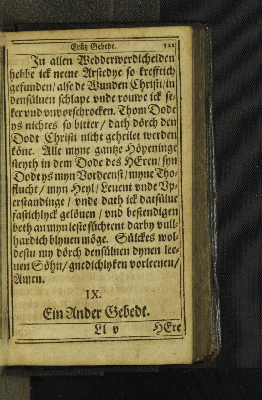 Crütz Gebede. 521
In allen Wedderwerdicheiden
hebbe ick neene Arstedye so krefftich
gefunden / alse de Wunden Christi / in
densüluen schlape vnde rouwe ick se-
ker vnd vnvorschrocken. Thom Dode
ys nichtes so bitter / dath dörch den
Dodt Christi nicht geheilet werden
köne. Alle myne gantze Höpeninge
steyth in dem Dode des HEren / syn
Dodt ys myn Vordeenst / myne Tho-
flucht / myn Heyl / Leuent vnde Vp-
erstandinge / vnde dath ick datsülue
fastichlyck gelöuen / vnd bestendigen
beth an myn leste süchtent darby vull-
hardich blyuen möge. Sülckes wol-
destu my dörch densüluen dynen lee-
uen Söhn / gnedichlyken vorleenen /
Amen.
IX.
Ein Ander Gebedt.
Ll v HEre